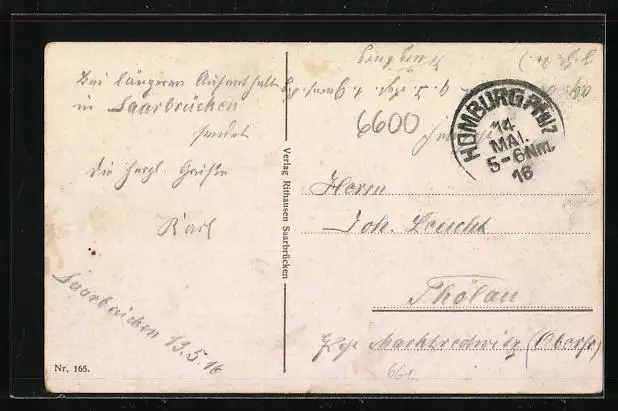 Bei längeren Aufenthalt
in Saarbrücken
sendet
die herzl. Grüße
Karl
Saarbrücken 13.5.16
Nr. 165.
Verlag Rithausen Saarbrücken
6600
HOMBURG, PFALZ
14
MAI.
5-6 Nm.
16
Herrn
Joh. Leucht
Thölau
Marktredwitz (Oberfr.)
661